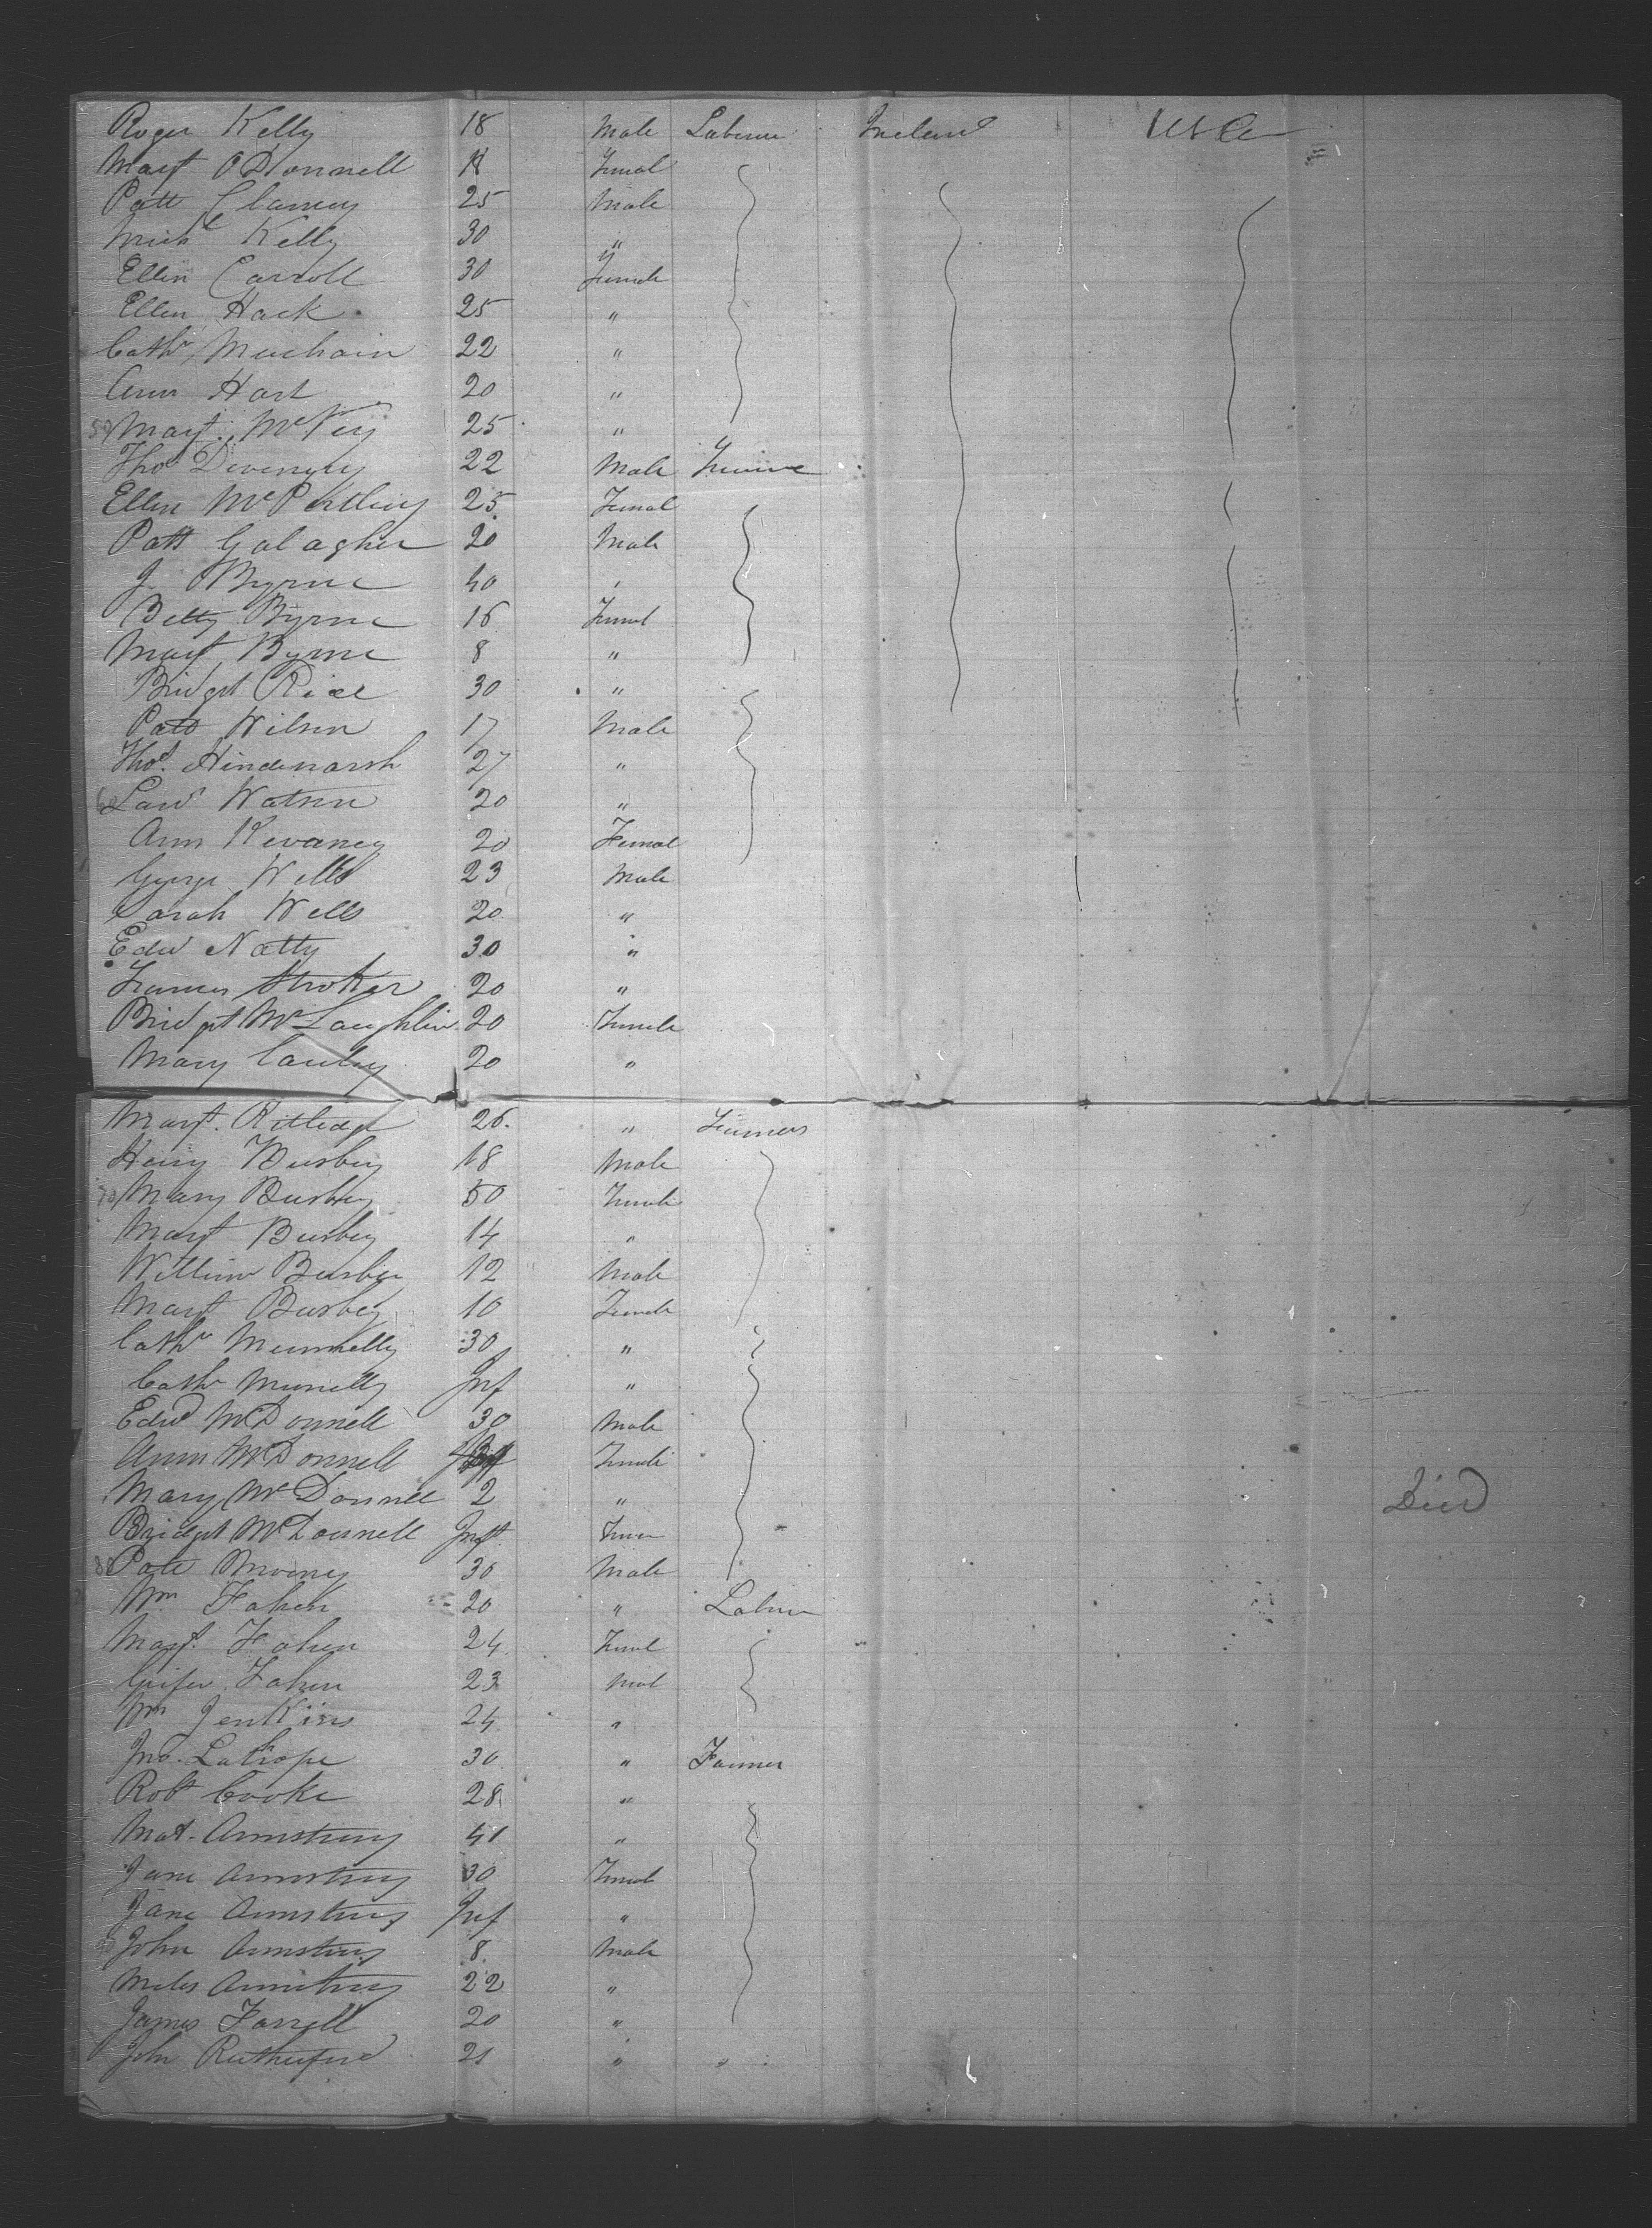 Roger Kelly 18 Male Laborer Ireland USA
Margt O'Donnell 18 Femal
Patt Clancey 25 Male
Michl Kelly 30 "
Ellen Carroll 30 Female
Ellen Hack 25 "
Cathr 22 "
Ann Hart 20 "
Margt McVey 25 "
Thos Devenyey 22 Male
Ellen McPartling 25 Femal
Patt Galagher 20 Male
J. Byrne 40 "
Betty Byrne 16 Femal
Margt Byrne 8 "
Bridget Rice 30 "
Patt Wilson 17 Male
Thos. Hindmarsh 27 "
60 Law Watson 20 "
Ann Kevaney 20 Femal
George Wells 23 Male
Sarah Wells 20 "
Edwd Natty 30 "
Francis Stroker 20 "
Bridget McLaughlin 20 Female
Mary Cauley 20 "
Margt. Ritledge 26. " Farmers
Henry Busbey 18 Male
70 Mary Busbey 50 Female
Margt Busbey 14 "
William Busbey 12 Male
Margt Busbey 10 Female
Cathr Munnelly 30 "
Cathr Munelly Inf "
Edwd McDonnell 30 Male
Ann McDonnell Female
Mary McDonnell 2 " Died
Bridget McDonnell Inft.
80 Patt Mooney 30 Male
Wm Fahen 20 " Labour
Margt. Fahen 24 Femal
Fahen 23 Mal
Wm Jenkins 24 "
Jno. Lathrope 30 " Farmer
Robt Cooke 28 "
Mat. Armstrong 41 "
Jane Armstrong 30 Femal
Jane Armstrong Inf "
90 John Armstrong 8 Male
Miles Armstrong 22 "
James Farrell 20 "
John Rutherford 21 " "